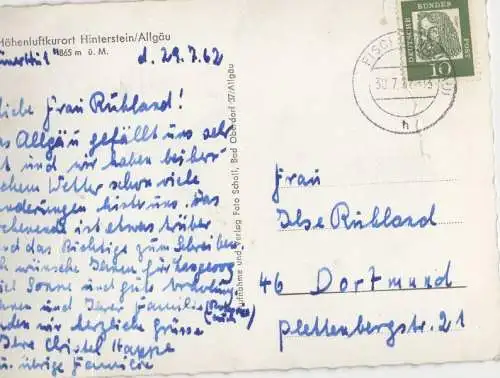 Höhenluftkurort Hinterstein/Allgäu
865 m ü. M.
d. 29.7.62
liebe Frau Ruhland!
as Allgäu gefällt uns sehr
t und wir haben bei herr-
chem Wetter schon viele
nderungen hinter uns. Das
ochenende ist etwas trüber
und das Richtige zum Schreiben
ch wünsche Ihnen für
iel Sonne und gute
hnen und Ihrer Familie
nden wir herzliche Grüsse
Ihre Christel Happe
u. übrige Familie
Aufnahme und Verlag Foto Scholl, Bad Oberdorf 37/Allgäu
DEUTSCHE BUNDESPOST
10
FISCH
30.7.
h
Frau
Ilse Ruhland
46 Dortmund
Plettenbergstr. 21